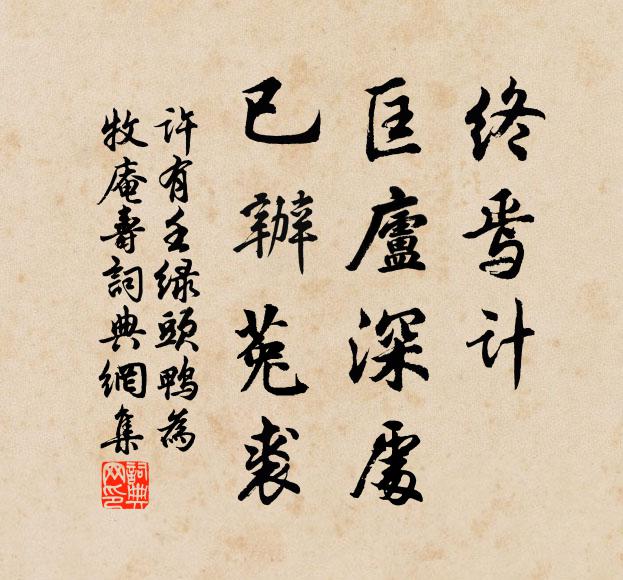 終焉計
匡廬深處
已辦菟裘
許有壬綠頭鴨為
牧庵壽詞典網集
詞典网印